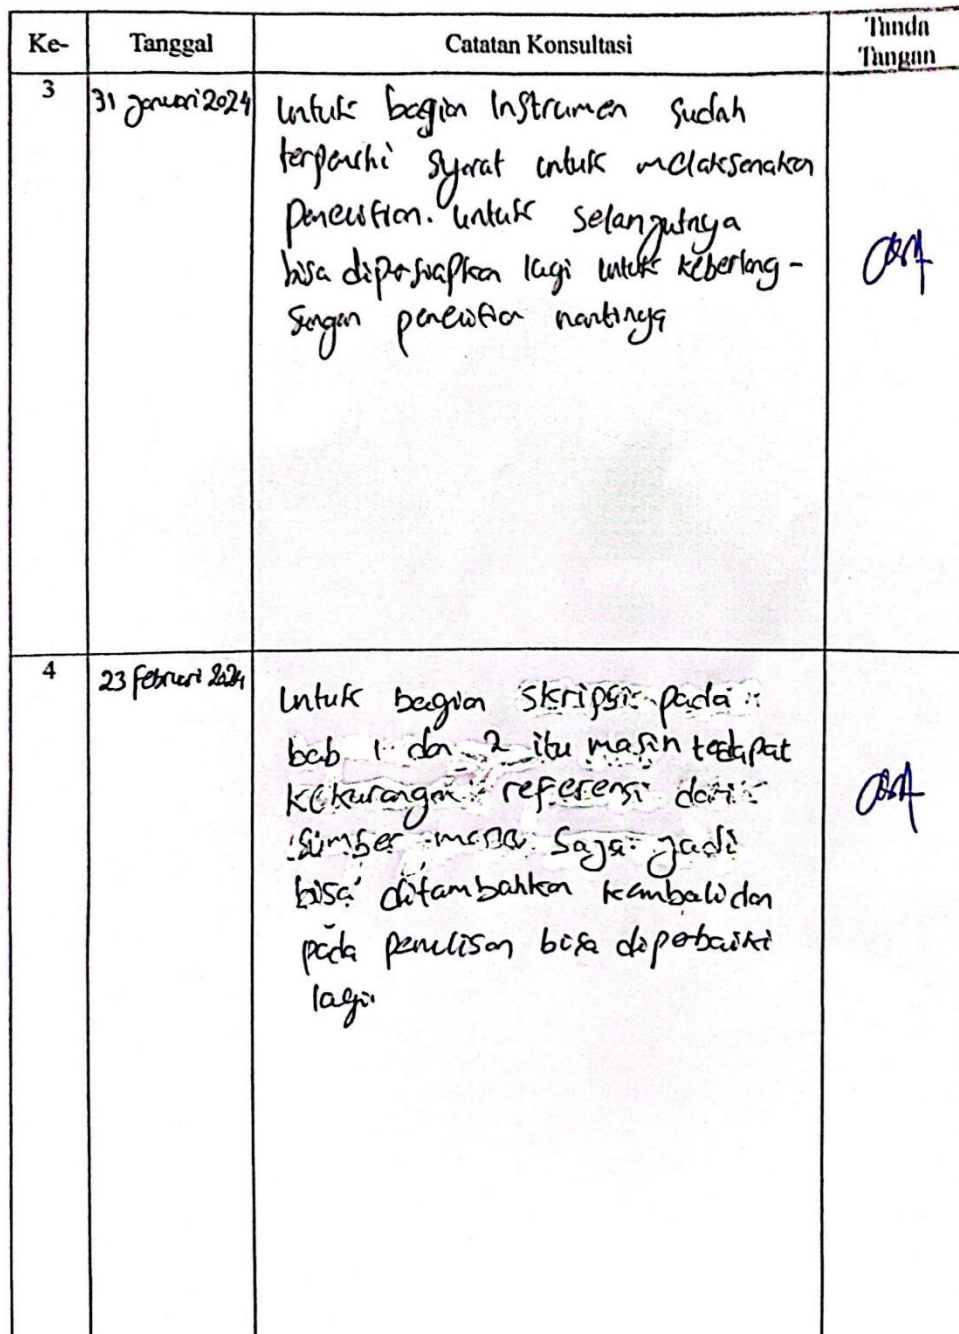 Ke-
Tanggal
Catatan Konsultasi
Tanda
Tangan
3
31 Januari 2024
Untuk bagian Instrumen sudah
terpenuhi syarat untuk melaksanakan
penelitian. untuk selanjutnya
bisa dipersiapkan lagi untuk keberlang-
sungan penelitian nantinya
4
23 Februari 2024
Untuk bagian skripsi pada
bab 1 dan 2 itu masih tedapat
kekurangan referensi dari
sumber mana saja jadi
bisa ditambahkan kembali dan
pada penulisan bisa diperbaiki
lagi.